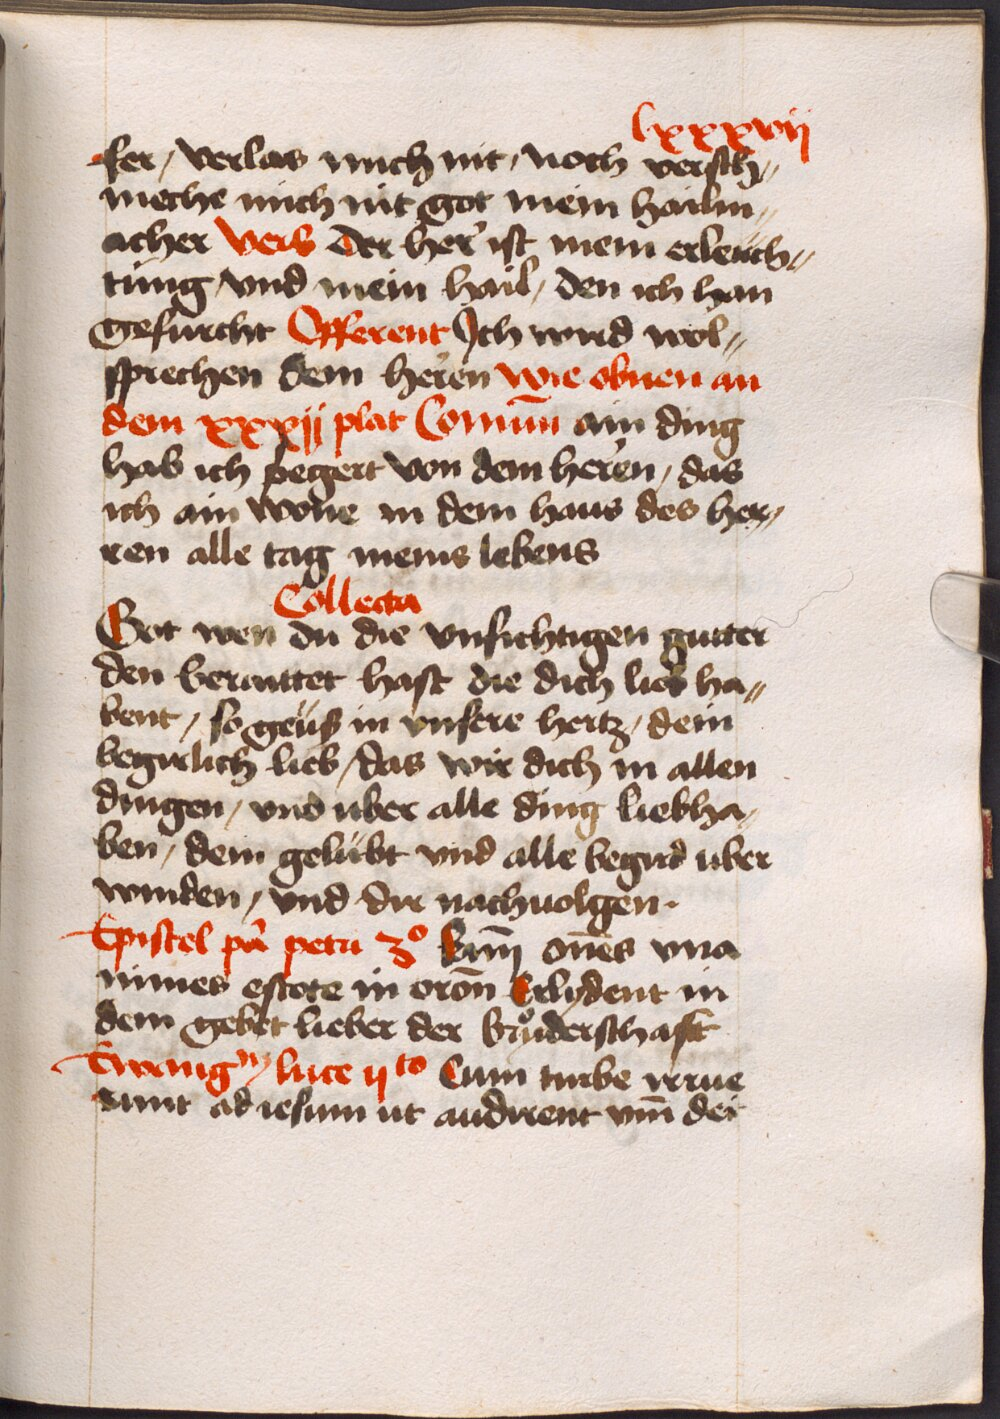 lxxxvij
fer / verlas mich nit / noch versch〃
meche mich nit got mein hailm〃
acher Vers Der her ist mein erleuch〃
tung / vnd mein hail / den ich han
gefurcht Offerent Ich wird wol〃
sprechen dem heren wie obnen an
dem xxxij plat Comūn ain ding
hab ich begert von dem heren / das
ich ain wone in dem haus des her〃
ren alle tag meins lebens
Collecta
Got wen du die vnsichtigen gutter
den beraittet hast die dich lieb ha〃
bent / so geüs in vnsere hertz / dein
begirlich lieb / das wir dich in allen
dingen / vnd uber alle ding liebha〃
ben / dein gelübt vnd alle begird uber
winden / vnd dir nachuolgen.
Epistel pā petri 3º kmī on̄es vna
nimes estote in oron̄ Erlydent in
dem gebet lieber der bruderschaft
Ewangm luce vto Cum turbe irrue
runt ad iesum ut audirent vm̄ dei